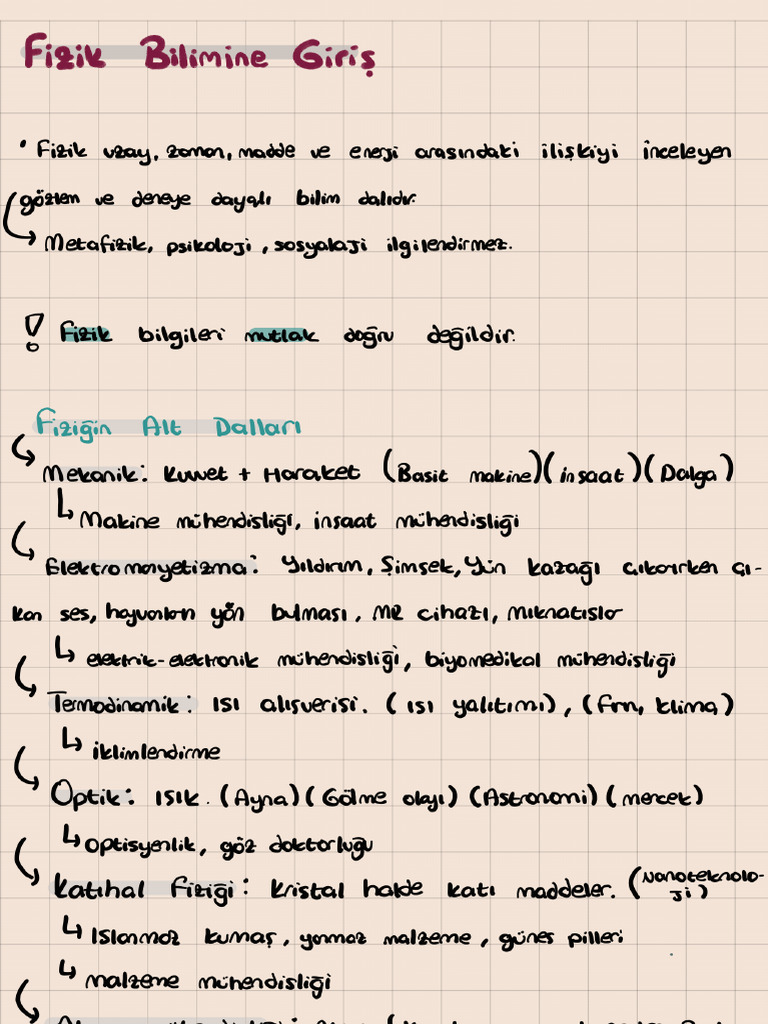 Fizik Bilimine Giriş
• Fizik uzay, zaman, madde ve enerji arasındaki ilişkiyi inceleyen
gözlem ve deneye dayalı bilim dalıdır.
Metafizik, psikoloji, sosyalaji ilgilendirmez.
! Fizik bilgileri mutlak doğru değildir.
Fiziğin Alt Dalları
Mekanik: Kuvvet + Haraket (Basit makine)(inşaat)(Dalga)
Makine mühendisliği, inşaat mühendisliği
Elektromanyetizma: Yıldırım, Şimşek, Yün kazağı çıkarırken çı-
kan ses, hayvanların yön bulması, MR cihazı, Mıknatıslar
elektrik-elektronik mühendisliği, biyomedikal mühendisliği
Termodinamik: ISI alışverişi. (ısı yalıtımı), (fırın, klima)
iklimlendirme
Optik: IŞIK. (Ayna)(Gölme olayı)(Astronomi)(mercek)
Optisyenlik, göz doktorluğu
Katıhal Fiziği: Kristal halde katı maddeler. (Nanoteknolo-
ji)
Islanmaz kumaş, yanmaz malzeme, güneş pilleri
Malzeme mühendisliği